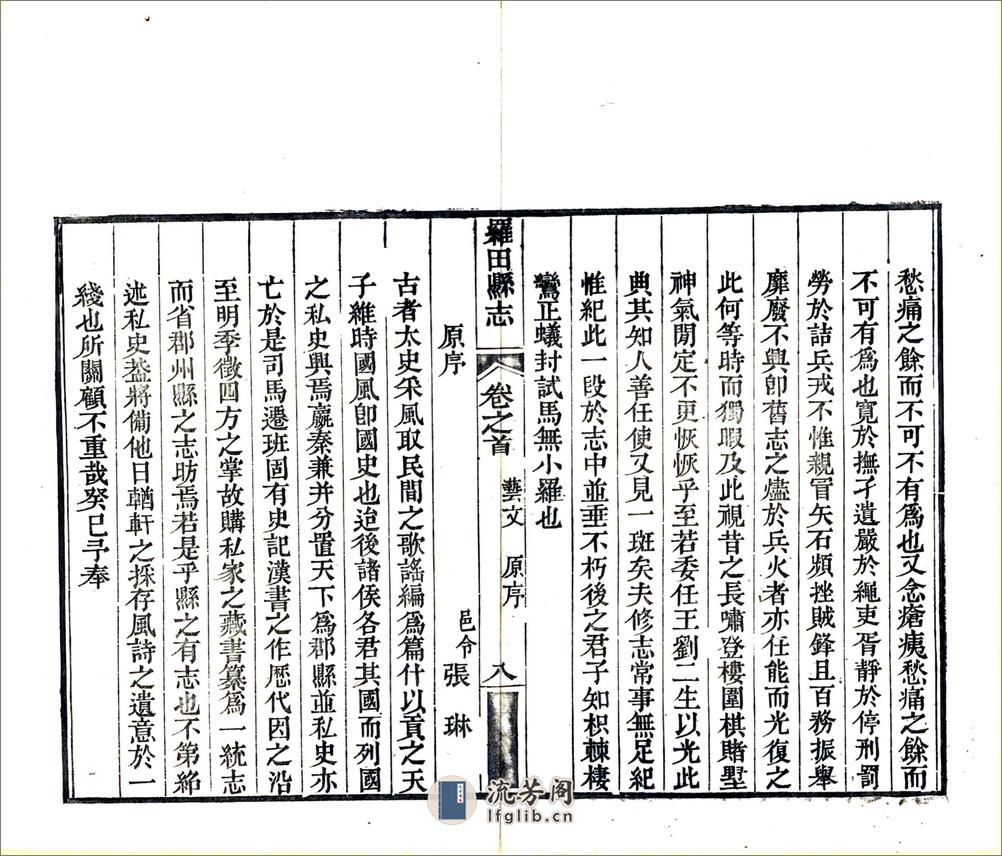 愁痛之餘而不可不有爲也又念瘡痍愁痛之餘而
不可有爲也寛於撫孑遺嚴於繩吏胥靜於停刑罰
勞於詰兵戎不惟親冐矢石頻挫賊鋒且百務振舉
靡廢不興卽舊志之燼於兵火者亦任能而光復之
此何等時而獨暇及此視昔之長嘯登樓圍棋賭墅
神氣閒定不更恢恢乎至若委任王劉二生以光此
典其知人善任使又見一斑矣夫修志常事無足紀
惟紀此一段於志中並垂不朽後之君子知枳棘棲
鸞正蟻封試馬無小羅也
羅田縣志 卷之首 藝文 原序 八
原序
邑令 張琳
古者太史采風取民間之歌謠編爲篇什以貢之天
子維時國風卽國史也迨後諸侯各君其國而列國
之私史興焉嬴秦兼并分置天下爲郡縣並私史亦
亡於是司馬遷班固有史記漢書之作歷代因之沿
至明季徵四方之掌故購私家之藏書纂爲一統志
而省郡州縣之志昉焉若是乎縣之有志也不第紹
述私史葢將備他日輶軒之採存風詩之遺意於一
綫也所關顧不重哉癸巳予奉
流芳阁
lfglib.cn